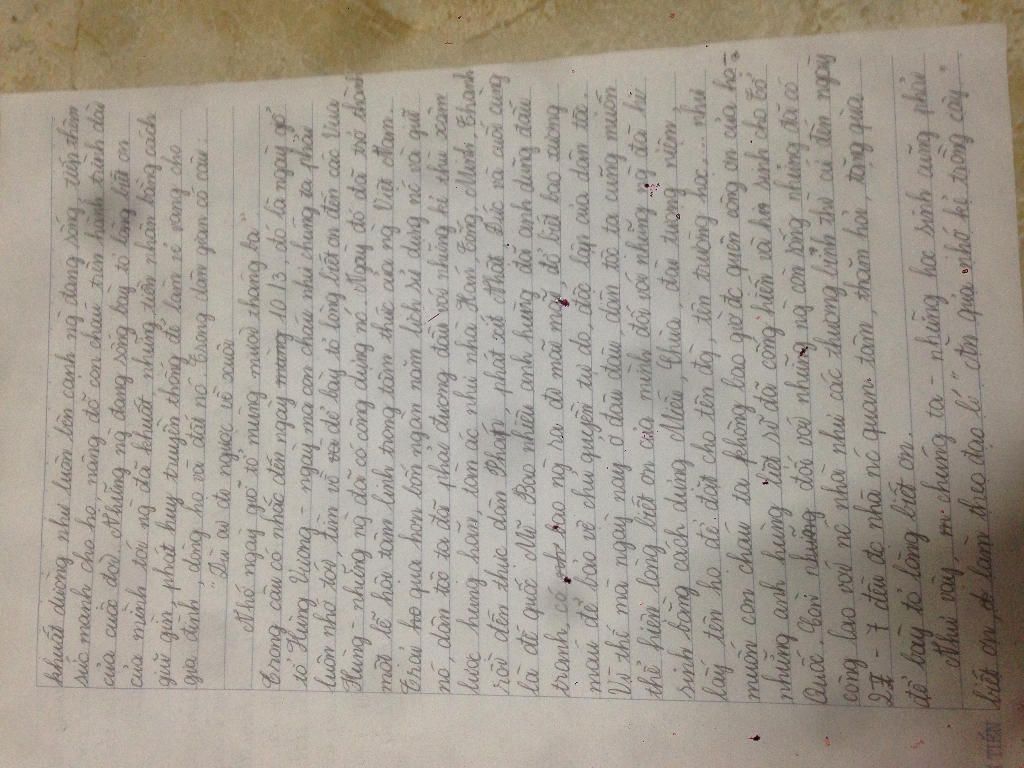 khuất dường như luôn bên cạnh ng đang sống, tiếp thêm
sức mạnh cho họ, nâng đỡ con cháu trên hành trình dài
của cuộc đời. Những ng đang sống bày tỏ lòng biết ơn
của mình tới ng đã khuất những tiền nhân bằng cách
giữ gìn phát huy truyền thống để làm vẻ vang cho
gia đình, dòng họ và đất nc Trong dân gian có câu:
"Dù ai đi ngược về xuôi
Nhớ ngày giỗ tổ mùng mười tháng ba"
Trong câu có nhắc đến ngày mùng 10/3, đó là ngày giỗ
tổ Hùng Vương - ngày mà con cháu như chúng ta phải
luôn nhớ tới, tìm về để bày tỏ lòng biết ơn đến các Vua
Hùng - những ng đã có công dựng nc. Ngày đó đã trở thành
một lễ hội tâm linh trong tâm thức của ng Việt Nam.
Trải qua hơn bốn ngàn năm lịch sử dựng nc và giữ
nc, dân tộc ta đã phải đương đầu với những kẻ thù xâm
lược hung hãn, tàn ác như nhà Hán, Tống, Minh, Thanh
rồi đến thực dân Pháp, phát xít Nhật, Đức và cuối cùng
là đế quốc Mĩ. Bao nhiêu anh hùng đã anh dũng đấu
tranh, có bao ng ra đi mãi mãi, đổ biết bao xương
máu để bảo vệ chủ quyền, tự do, độc lập của dân tộc.
Vì thế mà ngày nay, ở đâu đâu, dân tộc ta cũng muốn
thể hiện lòng biết ơn của mình đối với những ng đã hi
sinh bằng cách dựng Miếu, Chùa, đài tưởng niệm,
lấy tên họ để đặt cho tên đg, tên trường học,... như
muốn con cháu ta không bao giờ đc quên công ơn của họ -
những anh hùng liệt sĩ đã cống hiến và hi sinh cho Tổ
Quốc. Còn đối với những ng còn sống nhưng đã có
công lao với nc nhà như các thương binh thì cứ đến ngày
27 - 7 đều đc nhà nc quan tâm, thăm hỏi, tặng quà
để bày tỏ lòng biết ơn.
Như vậy, chúng ta - những học sinh cũng phải
biết ơn, làm theo đạo lí "ăn quả nhớ kẻ trồng cây".
TIẾN